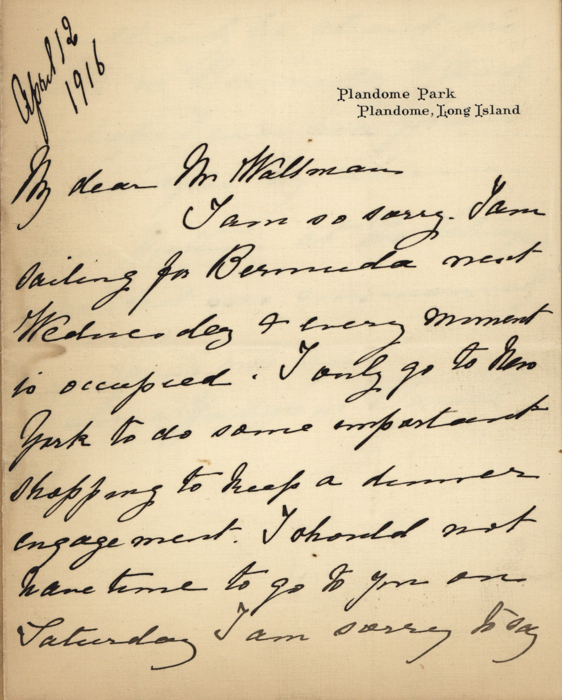 April 12
1916
Plandome Park
Plandome, Long Island
My dear Mr Waltman
I am so sorry. I am
sailing for Bermuda next
Wednesday & every moment
is occupied. I only go to New
York to do some important
shopping to keep a dinner
engagement. I should not
have time to go to you on
Saturday I am sorry to say